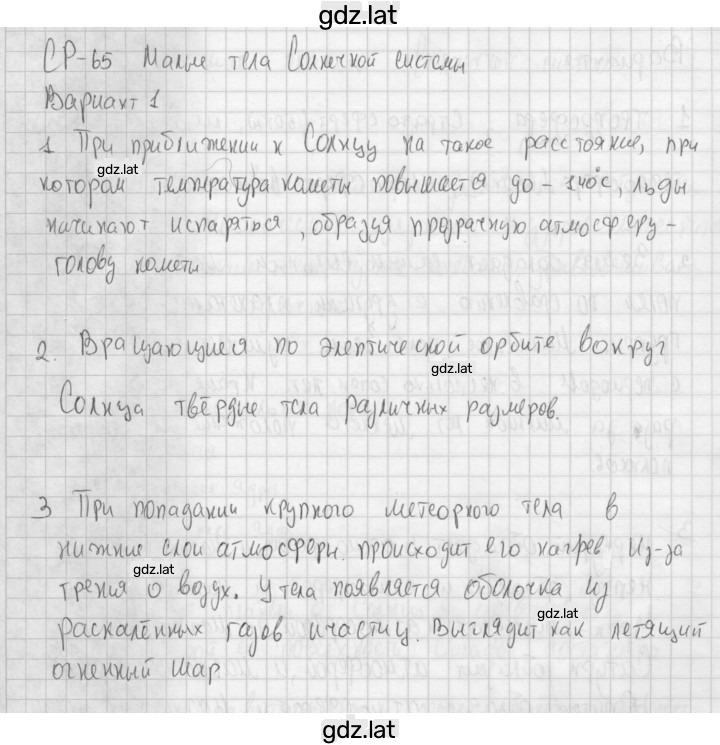 gdz.lat
СР-65 Малые тела Солнечной системы
Вариант 1
1 При приближении к Солнцу на такое расстояние, при
gdz.lat
котором температура кометы повышается до -140°с, льды
gdz.lat
начинают испаряться, образуя прозрачную атмосферу-
голову кометы
2. Вращающиеся по элептической орбите вокруг
gdz.lat
Солнца твёрдые тела различных размеров.
3 При попадании крупного метеорного тела в
нижние слои атмосферы. происходит его нагрев, Из-за
gdz.lat
трения о воздух. У тела появляется оболочка из
gdz.lat
раскалённых газов и частиц. Выглядит как летящий
огненный шар
gdz.lat
gdz.lat